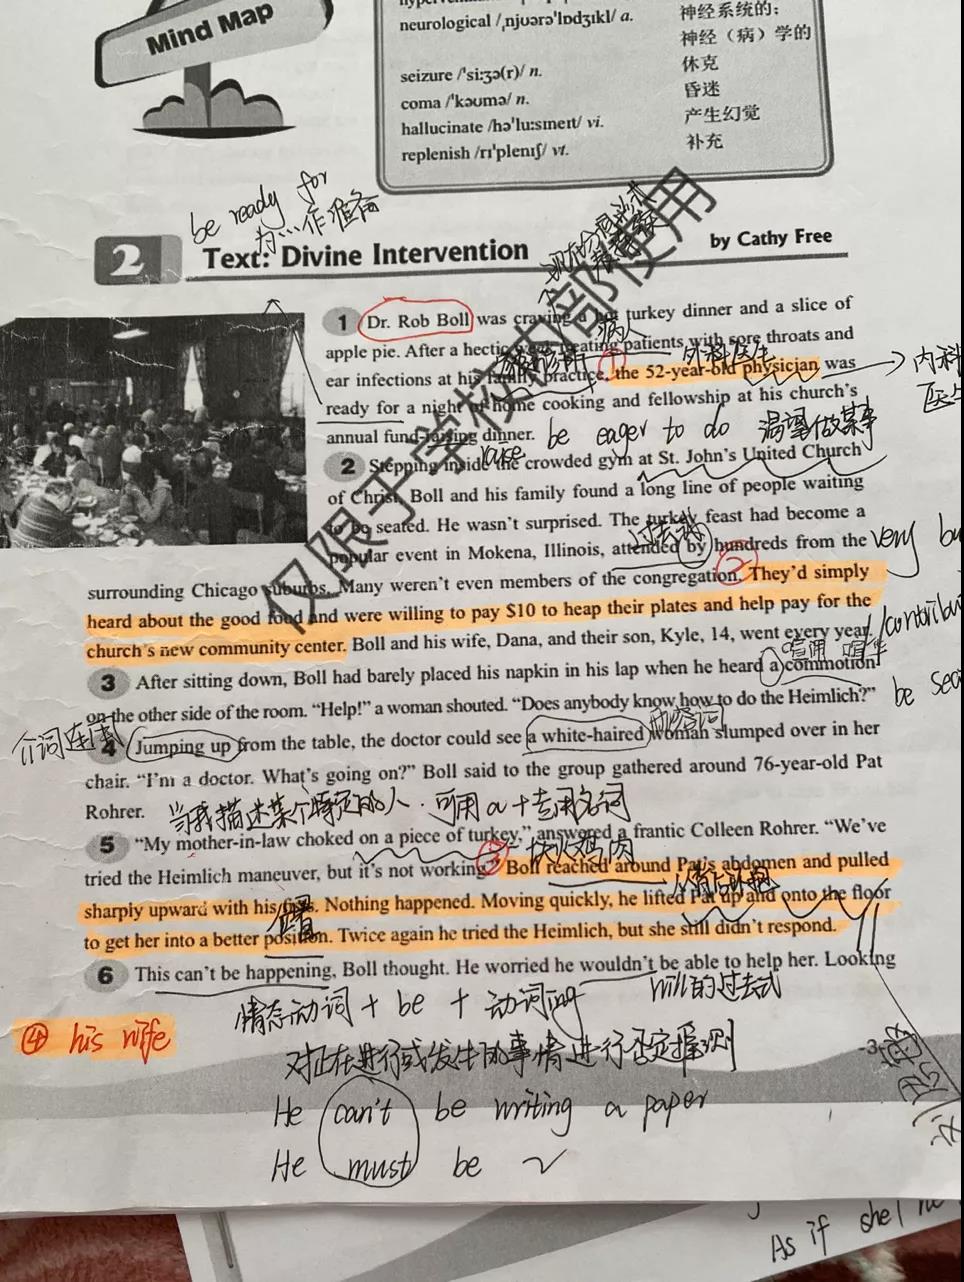 Mind Map
neurological /ˌnjʊərə'lɒdʒɪkl/ a.
神经系统的;
神经（病）学的
seizure /'si:ʒə(r)/ n.
休克
coma /'kəʊmə/ n.
昏迷
hallucinate /hə'lu:sɪneɪt/ vi.
产生幻觉
replenish /rɪ'plenɪʃ/ vt.
补充
be ready for
为…作准备
2 Text: Divine Intervention by Cathy Free
仅限于学校内部使用
1 Dr. Rob Boll was craving a hot turkey dinner and a slice of
病人
apple pie. After a hectic week treating patients with sore throats and
外科医生
ear infections at his family practice, the 52-year-old physician was
内科
ready for a night of home cooking and fellowship at his church's
annual fund-raising dinner.
raise
be eager to do 渴望做某事
2 Stepping inside the crowded gym at St. John's United Church
of Christ, Boll and his family found a long line of people waiting
to be seated. He wasn't surprised. The turkey feast had become a
过去式
popular event in Mokena, Illinois, attended by hundreds from the
very
surrounding Chicago suburbs. Many weren't even members of the congregation. They'd simply
heard about the good food and were willing to pay $10 to heap their plates and help pay for the
church's new community center. Boll and his wife, Dana, and their son, Kyle, 14, went every year.
3 After sitting down, Boll had barely placed his napkin in his lap when he heard a commotion
on the other side of the room. "Help!" a woman shouted. "Does anybody know how to do the Heimlich?"
be
4 Jumping up from the table, the doctor could see a white-haired woman slumped over in her
chair. "I'm a doctor. What's going on?" Boll said to the group gathered around 76-year-old Pat
Rohrer.
当我描述某个特定的人，可用a+专用名词
5 "My mother-in-law choked on a piece of turkey," answered a frantic Colleen Rohrer. "We've
③ 一块火鸡肉
tried the Heimlich maneuver, but it's not working." Boll reached around Pat's abdomen and pulled
sharply upward with his fists. Nothing happened. Moving quickly, he lifted Pat up and onto the floor
位置
to get her into a better position. Twice again he tried the Heimlich, but she still didn't respond.
6 This can't be happening, Boll thought. He worried he wouldn't be able to help her. Looking
will的过去式
情态动词 + be + 动词ing
④ his wife
对正在进行或发生的事情进行否定推测
-3
He can't be writing a paper
He must be
As if she